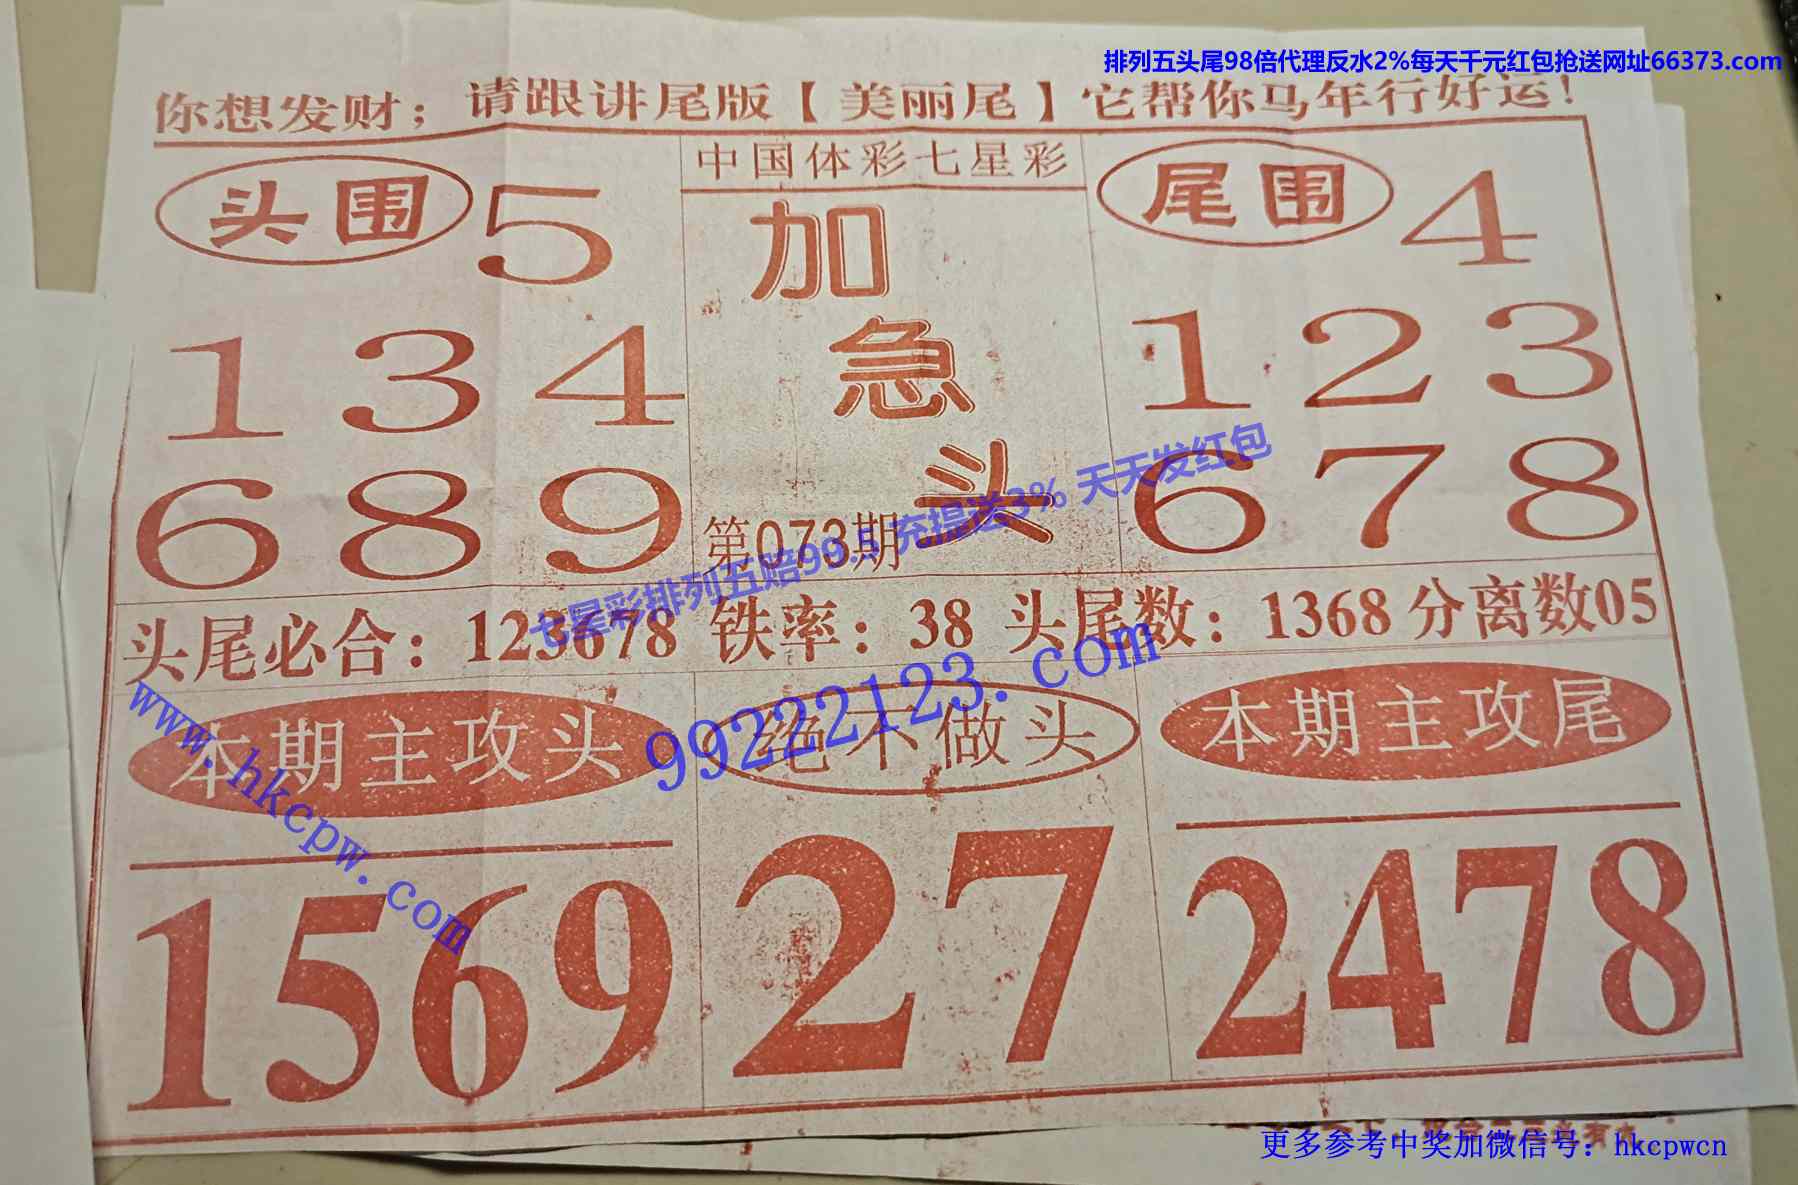 排列五头尾98倍代理反水2%每天千元红包抢送网址66373.com
你想发财；请跟讲尾版【美丽尾】它帮你马年行好运！
中国体彩七星彩
头围 5
134
689
加急头
第073期
尾围 4
123
678
七星彩排列五赔99.5 充提送3% 天天发红包
头尾必合：123678 铁率：38 头尾数：1368 分离数05
www.hkcpw.com
99222123.com
本期主攻头
1569
绝不做头
27
本期主攻尾
2478
更多参考中奖加微信号：hkcpwcn